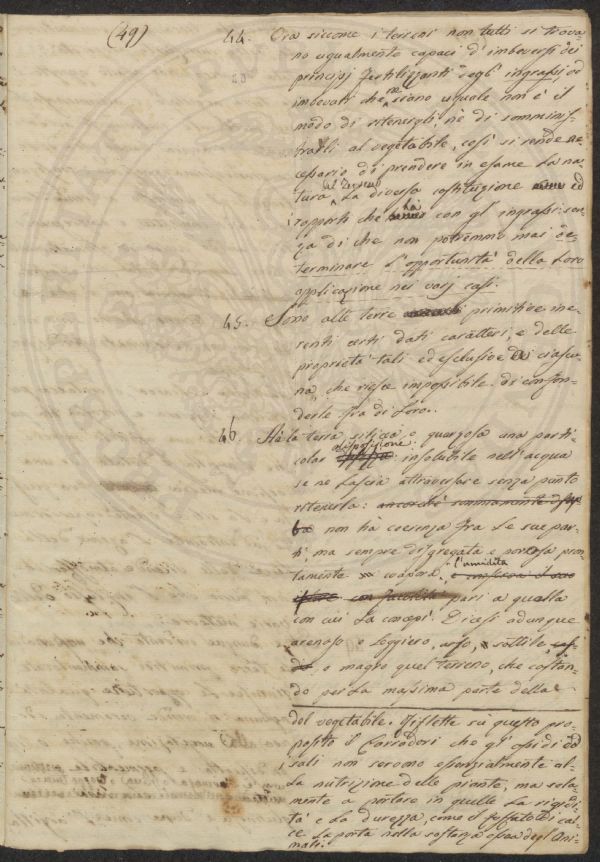 (49)
44. Ora siccome i terreni non tutti si trova-
no ugualmente capaci d'imbeversi dei
principj fertilizzanti degl'ingrassi, od
imbevuti che ne siano uguale non è il
modo di ritenergli, nè di somminis-
trarli al vegetabile, così si rende ne-
cessario di prendere in esame la na-
tura del terreno la diversa costituzione ed
rapporti che ha con gl'ingrassi sen-
za di che non potremmo mai de-
terminare l'opportunità della loro
applicazione nei varj casi.
45. Sono alle terre primitive ine-
renti certi dati caratteri, e delle
proprietà tali ed esclusive di ciascu-
na, che riesce impossibile di confon-
derle fra di loro.
46. Hà la terra silicea o quarzosa una parti-
colar disposizione: insolubile nell'acqua
se ne lascia attraversare senza punto
ritenerla: ancorchè sommamente
non hà coerenza fra le sue par-
ti, ma sempre disgregata e porosa pron-
tamente svapora l'umidità
con facilità pari a quella
con cui la concepì. Dicesi adunque
arenoso o leggiero, arso, sottile
o magro quel terreno, che costan-
do per la massima parte della
del vegetabile. Riflette sù questo pro-
posito il Corradori che gl'ossidi ed
sali non servono essenzialmente al-
la nutrizione delle piante, ma sola-
mente a portare in quelle la rigidi-
tà e la durezza, come il fosfato di cal-
ce la porta nella sostanza ossea degl'Ani-
mali.